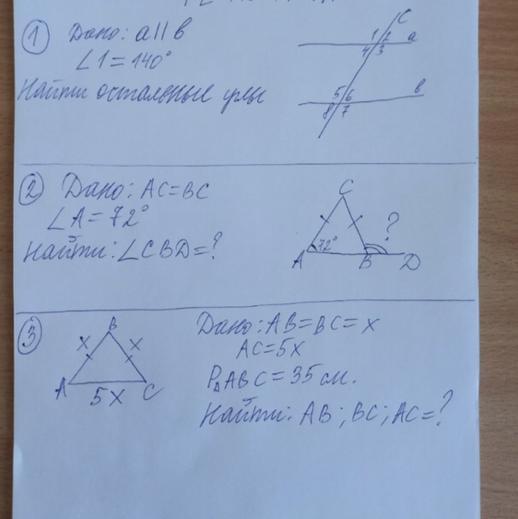 ① Дано: a||b
∠1=140°
Найти остальные углы
c
1 2 a
4 3
5 6 b
8 7
② Дано: AC=BC
∠A=72°
Найти: ∠CBD=?
C
?
72°
A B D
③ Дано: AB=BC=x
AC=5x
P∆ABC=35см.
Найти: AB; BC; AC=?
B
x x
A C
5x